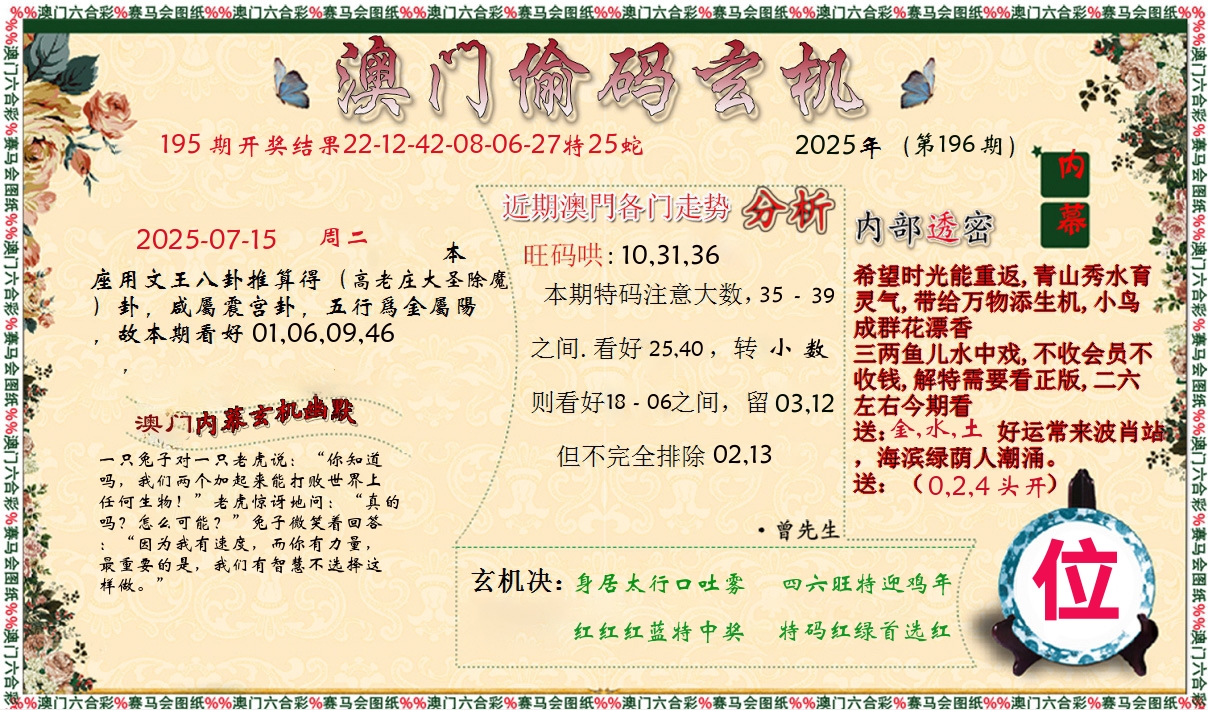 %%澳门六合彩%赛马会图纸%%澳门六合彩%赛马会图纸%%澳门六合彩%赛马会图纸%%澳门六合彩%赛马会图纸%%澳门六合彩%赛马会图纸%%澳门六合彩%赛马会图纸%%
澳门偷码玄机
195 期开奖结果22-12-42-08-06-27特25蛇
2025年（第196 期）
内幕
2025-07-15 周二
本
座用文王八卦推算得（高老庄大圣除魔
）卦，咸屬震宫卦，五行爲金屬陽
，故本期看好 01,06,09,46
，
澳门内幕玄机幽默
一只兔子对一只老虎说：“你知道
吗，我们两个加起来能打败世界上
任何生物！”老虎惊讶地问：“真的
吗？怎么可能？”兔子微笑着回答
：“因为我有速度，而你有力量，
最重要的是，我们有智慧不选择这
样做。”
近期澳門各门走势 分析
旺码哄: 10,31,36
本期特码注意大数, 35 - 39
之间. 看好 25,40 ，转 小 数
则看好18 - 06之间，留 03,12
但不完全排除 02,13
·曾先生
内部透密
希望时光能重返, 青山秀水育
灵气, 带给万物添生机, 小鸟
成群花漂香
三两鱼儿水中戏, 不收会员不
收钱, 解特需要看正版, 二六
左右今期看
送: 金,水,土 好运常来波肖站
，海滨绿荫人潮涌。
送：（0,2,4 头开）
玄机决: 身居太行口吐雾 四六旺特迎鸡年
红红红蓝特中奖 特码红绿首选红
位
%%澳门六合彩%赛马会图纸%%澳门六合彩%赛马会图纸%%澳门六合彩%赛马会图纸%%澳门六合彩%赛马会图纸%%澳门六合彩%赛马会图纸%%澳门六合彩%赛马会图纸%%